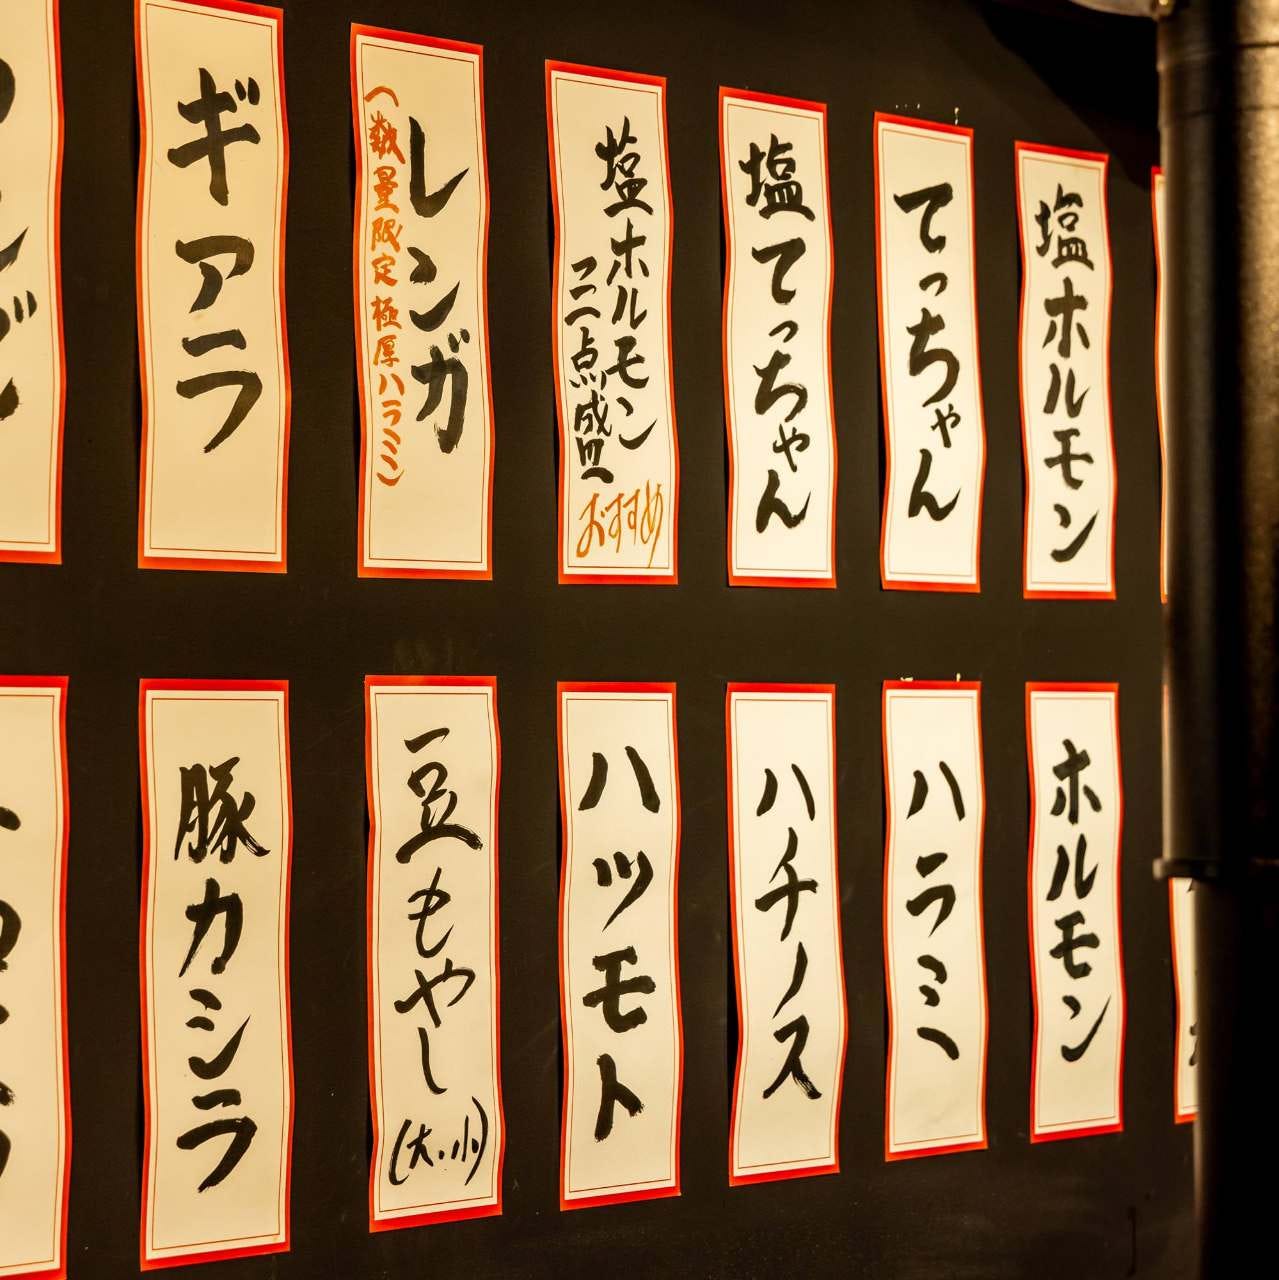 塩ホルモン
てっちゃん
塩てっちゃん
塩ホルモン
おすすめ
レンガ
(数量限定極厚ハラミ)
ギアラ
ホルモン
ハラミ
ハチノス
ハツモト
豆もやし
(大・小)
豚カシラ